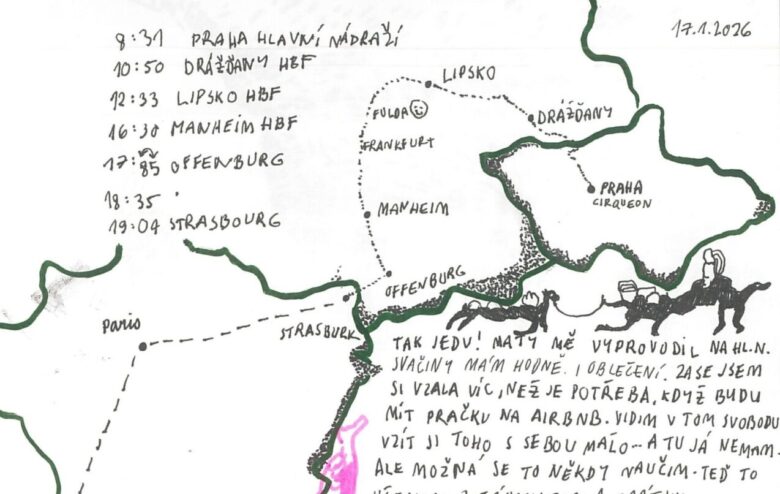 17.1.2026
8:31 PRAHA HLAVNÍ NÁDRAŽÍ
10:50 DRÁŽĎANY HBF
12:33 LIPSKO HBF
16:30 MANHEIM HBF
OFFENBURG
18:35
19:04 STRASBOURG
LIPSKO
FULDA
DRÁŽĎANY
FRANKFURT
PRAHA
CIRQUEON
MANHEIM
OFFENBURG
STRASBURK
Paris
TAK JEDU! MATY MĚ VYPROVODIL NA HL.N.
SVAČINY MÁM HODNĚ. I OBLEČENÍ. ZASE JSEM
SI VZALA VÍC, NEŽ JE POTŘEBA, KDYŽ BUDU
MÍT PRAČKU NA AIRBNB. VIDIM V TOM SVOBODU
VZÍT SI TOHO S SEBOU MÁLO - A TU JÁ NEMAM.
ALE MOŽNÁ SE TO NĚKDY NAUČIM. TEĎ TO